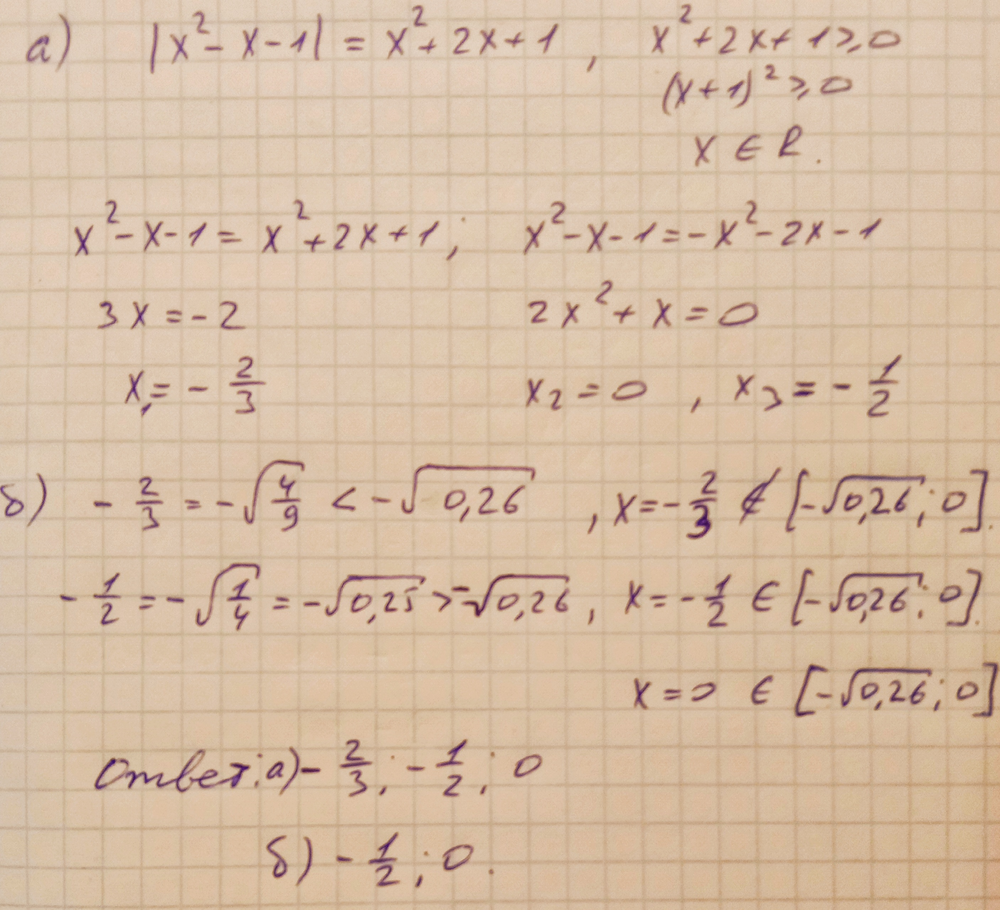 а) |x² - x - 1| = x² + 2x + 1 , x² + 2x + 1 ⩾ 0
(x + 1)² ⩾ 0
x ∈ R.
x² - x - 1 = x² + 2x + 1 ; x² - x - 1 = - x² - 2x - 1
3x = - 2 2x² + x = 0
x₁ = - 2/3 x₂ = 0 , x₃ = - 1/2
б) - 2/3 = - √(4/9) < - √0,26 , x = - 2/3 ∉ [-√0,26 ; 0].
- 1/2 = - √(1/4) = - √0,25 > -√0,26 , x = - 1/2 ∈ [-√0,26 ; 0].
x = 0 ∈ [-√0,26 ; 0]
Ответ: а) - 2/3 ; - 1/2 ; 0
б) - 1/2 ; 0.